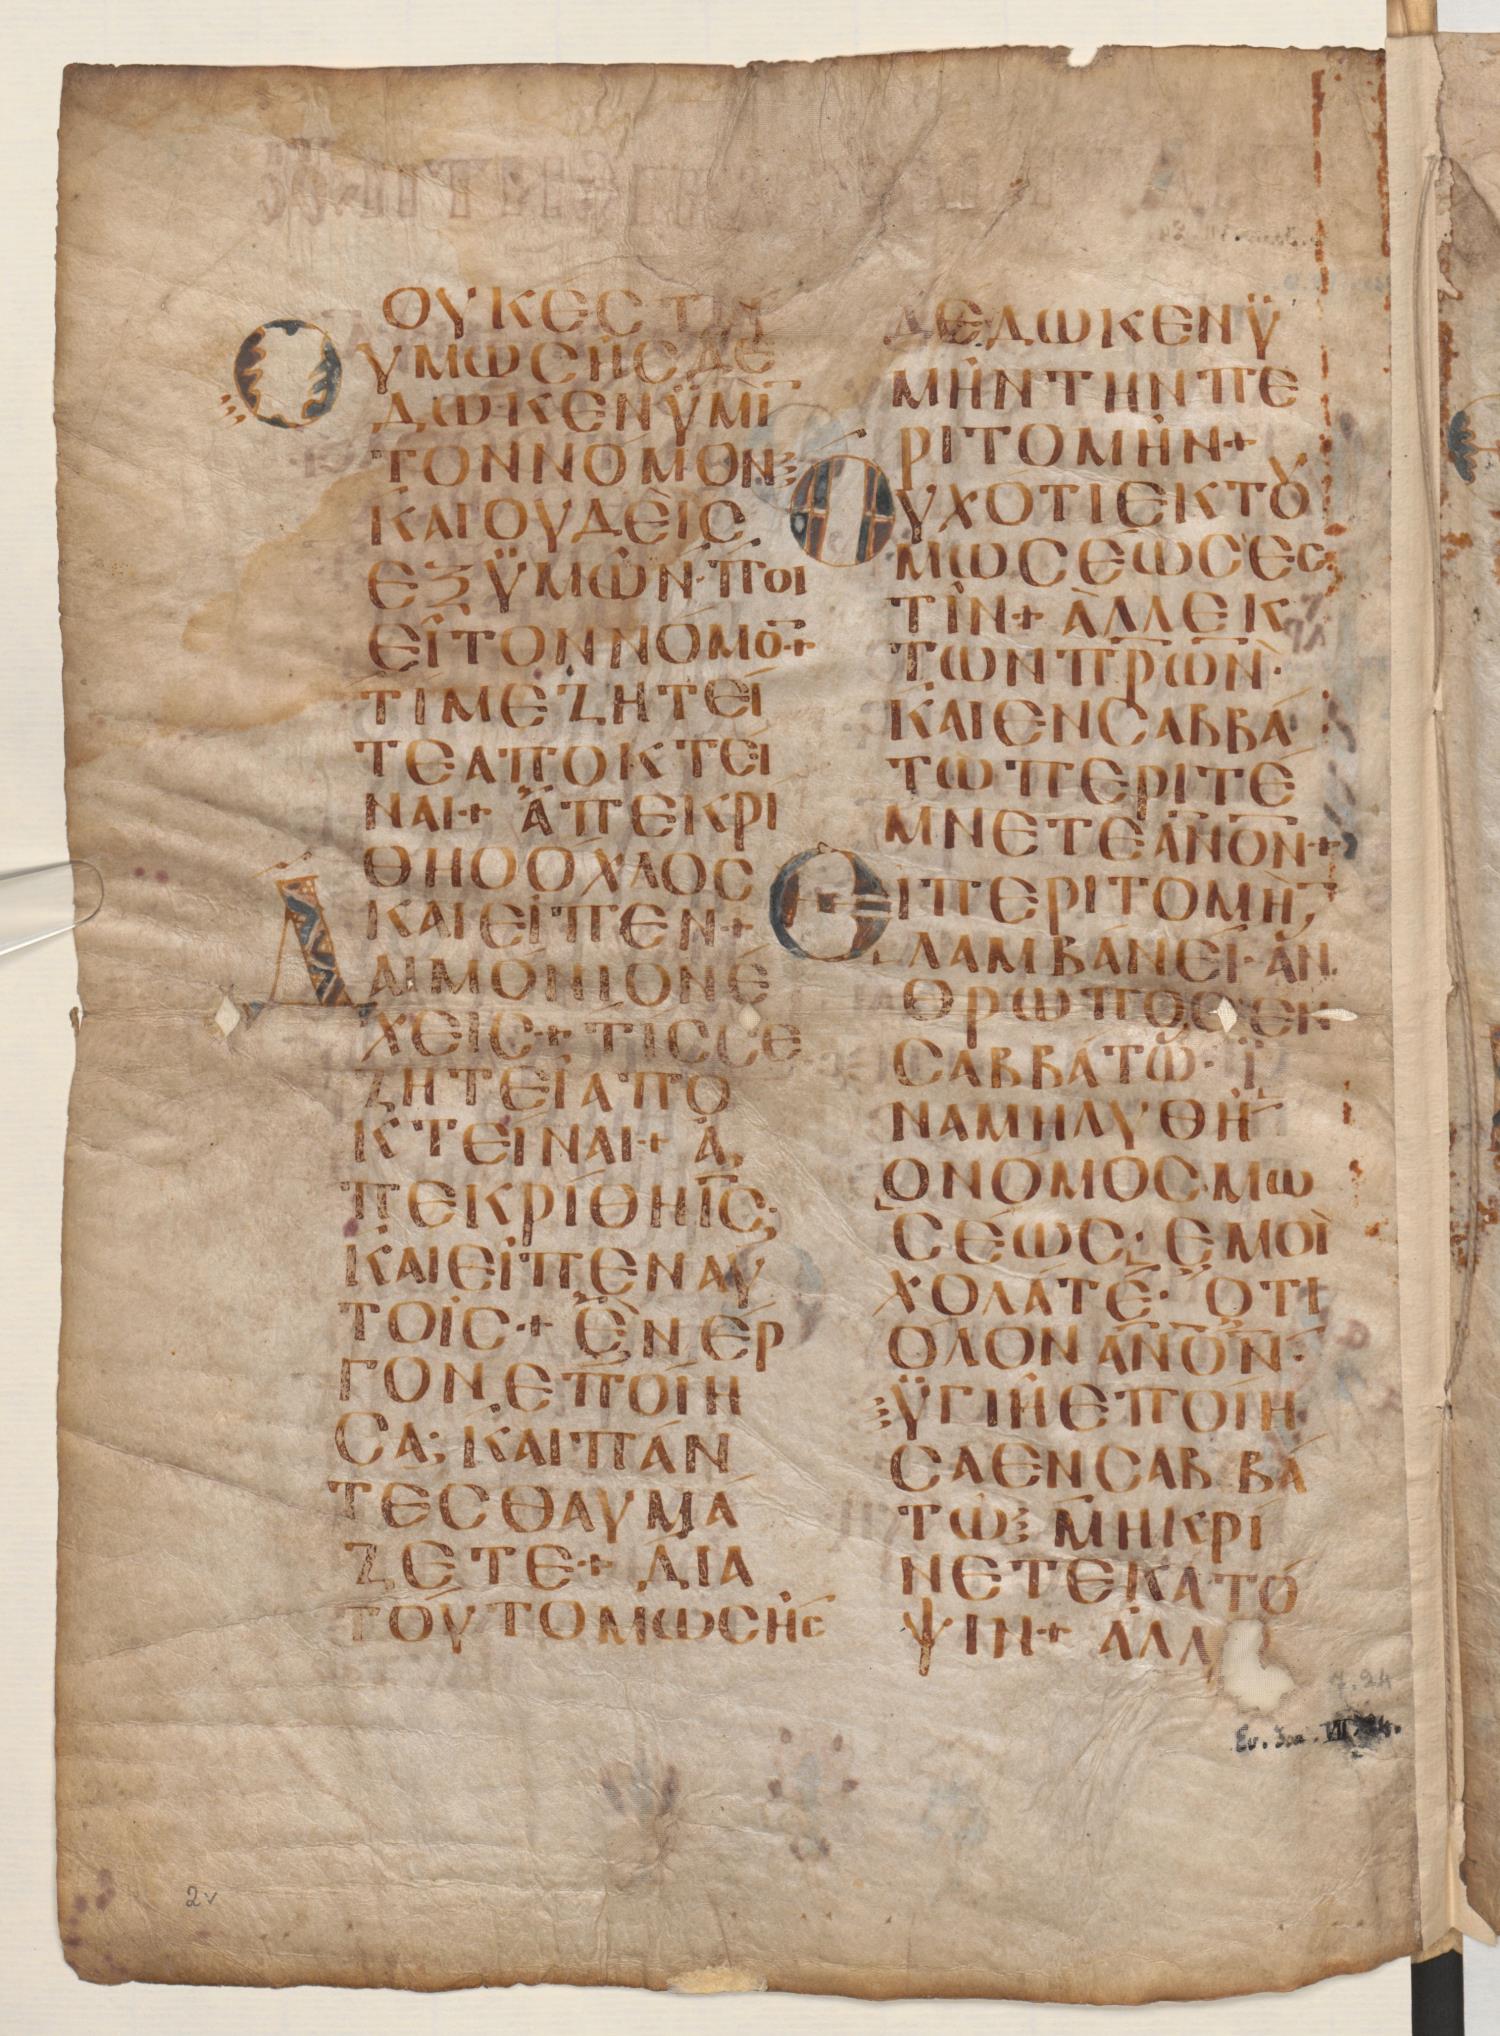 ΟΥΚΕСΤΙΝ
ΟΥΜΩСΗСΔΕ
ΔΩΚΕΝΫΜῙ
ΤΟΝΝΟΜΟΝ
ΚΑΙΟΥΔΕΙС
ΕΞΫΜΩΝ·ΠΟΙ
ΕΙΤΟΝΝΟΜΟ̄+
ΤΙΜΕΖΗΤΕΙ
ΤΕΑΠΟΚΤΕΙ
ΝΑΙ+ ἌΠΕΚΡΙ
ΘΗΟΟΧΛΟС
ΚΑΙΕΙΠΕΝ+
ΔΑΙΜΟΝΙΟΝΕ
ΧΕΙС+ ΤΙССΕ
ΖΗΤΕΙΑΠΟ
ΚΤΕΙΝΑΙ+ Α
ΠΕΚΡΙΘΗῙС̄
ΚΑΙΕΙΠΕΝΑΥ
ΤΟΙС+ ἛΝΕΡ
ΓΟΝΕΠΟΙΗ
СΑ; ΚΑΙΠΑΝ
ΤΕСΘΑΥΜΑ
ΖΕΤΕ+ ΔΙΑ
ΤΟΥΤΟΜΩСΗС
ΔΕΔΩΚΕΝΫ
ΜΗΝΤΗΝΠΕ
ΡΙΤΟΜΗΝ+
ΟΥΧΟΤΙΕΚΤȢ
ΜΩСΕΩСΕС
ΤΙΝ+ ΑΛΛΕΚ
ΤΩΝΠ̄Ρ̄Ω̄Ν̄·
ΚΑΙΕΝСΑΒΒΑ
ΤΩΠΕΡΙΤΕ
ΜΝΕΤΕᾹΝ̄Ο̄Ν̄+
ΕΙΠΕΡΙΤΟΜΗ̄
ΛΑΜΒΑΝΕΙ·ΑΝ
ΘΡΩΠΟСΕΝ
СΑΒΒΑΤΩ·Ϊ
ΝΑΜΗΛΥΘΗ
ΟΝΟΜΟС·ΜΩ
СΕΩС; ΕΜΟΙ
ΧΟΛΑΤΕ· ὍΤΙ
ΟΛΟΝᾹΝ̄Ο̄Ν̄·
ΫΓΙΗΕΠΟΙΗ
СΑΕΝСΑΒΒΑ
ΤΩ⁝ ΜΗΚΡΙ
ΝΕΤΕΚΑΤΟ
ΨΙΝ+ ΑΛΛ
7.24
Ev. Joa. VII. 24.
2v